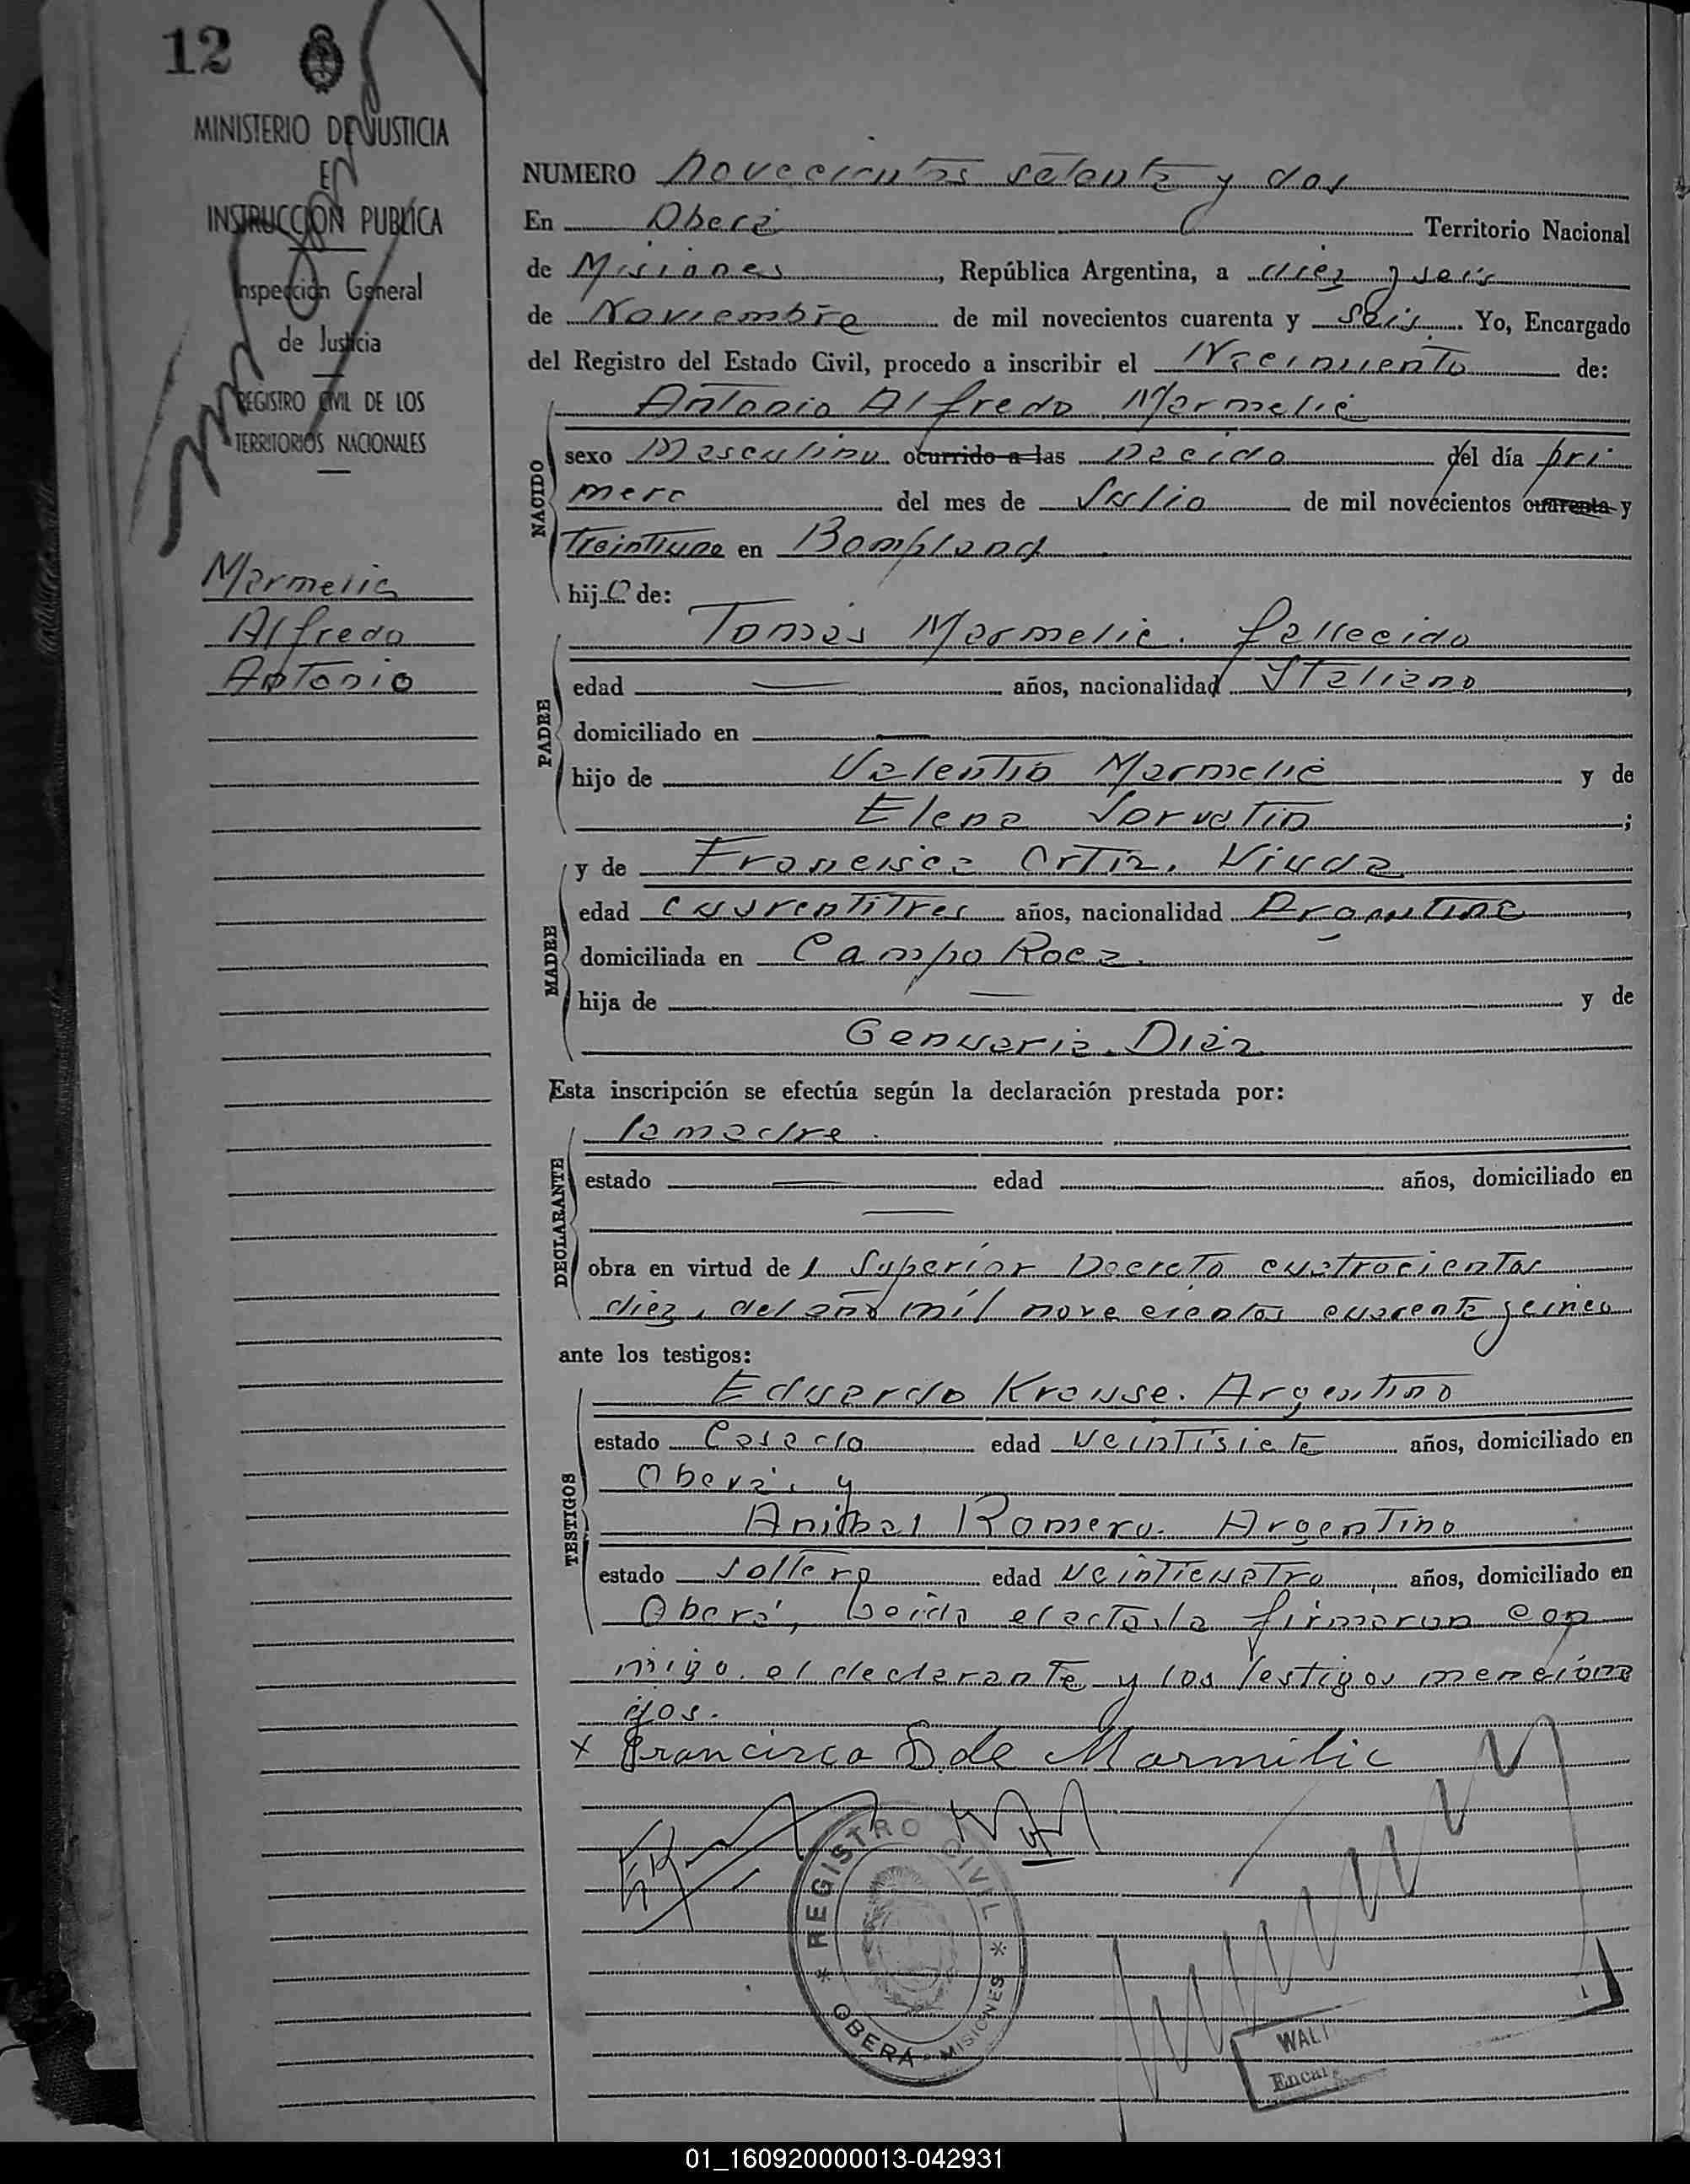 12
MINISTERIO DE JUSTICIA
E
INSTRUCCION PUBLICA
Inspección General
de Justicia
REGISTRO CIVIL DE LOS
TERRITORIOS NACIONALES
Marmelic
Alfredo
Antonio
NUMERO novecientos setenta y dos
En Oberá Territorio Nacional
de Misiones, República Argentina, a diez y seis
de Noviembre de mil novecientos cuarenta y seis. Yo, Encargado
del Registro del Estado Civil, procedo a inscribir el Nacimiento de:
Antonio Alfredo Marmelic
NACIDO
sexo Masculino ocurrido a las Nacido del día pri
mero del mes de Julio de mil novecientos cuarenta y
Treintiuno en Bompland
hijo de:
Tomas Marmelic. fallecido
PADRE
edad — años, nacionalidad Italiano,
domiciliado en —
hijo de Valentin Marmelic y de
Elena Sorvatin;
y de Francisca Ortiz. Viuda
MADRE
edad cuarentitres años, nacionalidad Argentina,
domiciliada en Campo Roca.
hija de — y de
Genuaria Diaz
Esta inscripción se efectúa según la declaración prestada por:
la madre.
DECLARANTE
estado — edad años, domiciliado en
—
obra en virtud de l Superior Decreto cuatrocientos
diez, del año mil novecientos cuarenta y cinco
ante los testigos:
Eduardo Krause. Argentino
TESTIGOS
estado Casado edad veintisiete años, domiciliado en
Oberá, y
Anibal Romero. Argentino
estado soltero edad veinticuatro, años, domiciliado en
Oberá, Leida el acta, la firmaron con
migo. el declarante y los testigos menciona
dos.
x Francisca O. de Marmilic
* REGISTRO CIVIL *
OBERÁ - MISIONES
WALT
Encar
01_160920000013-042931